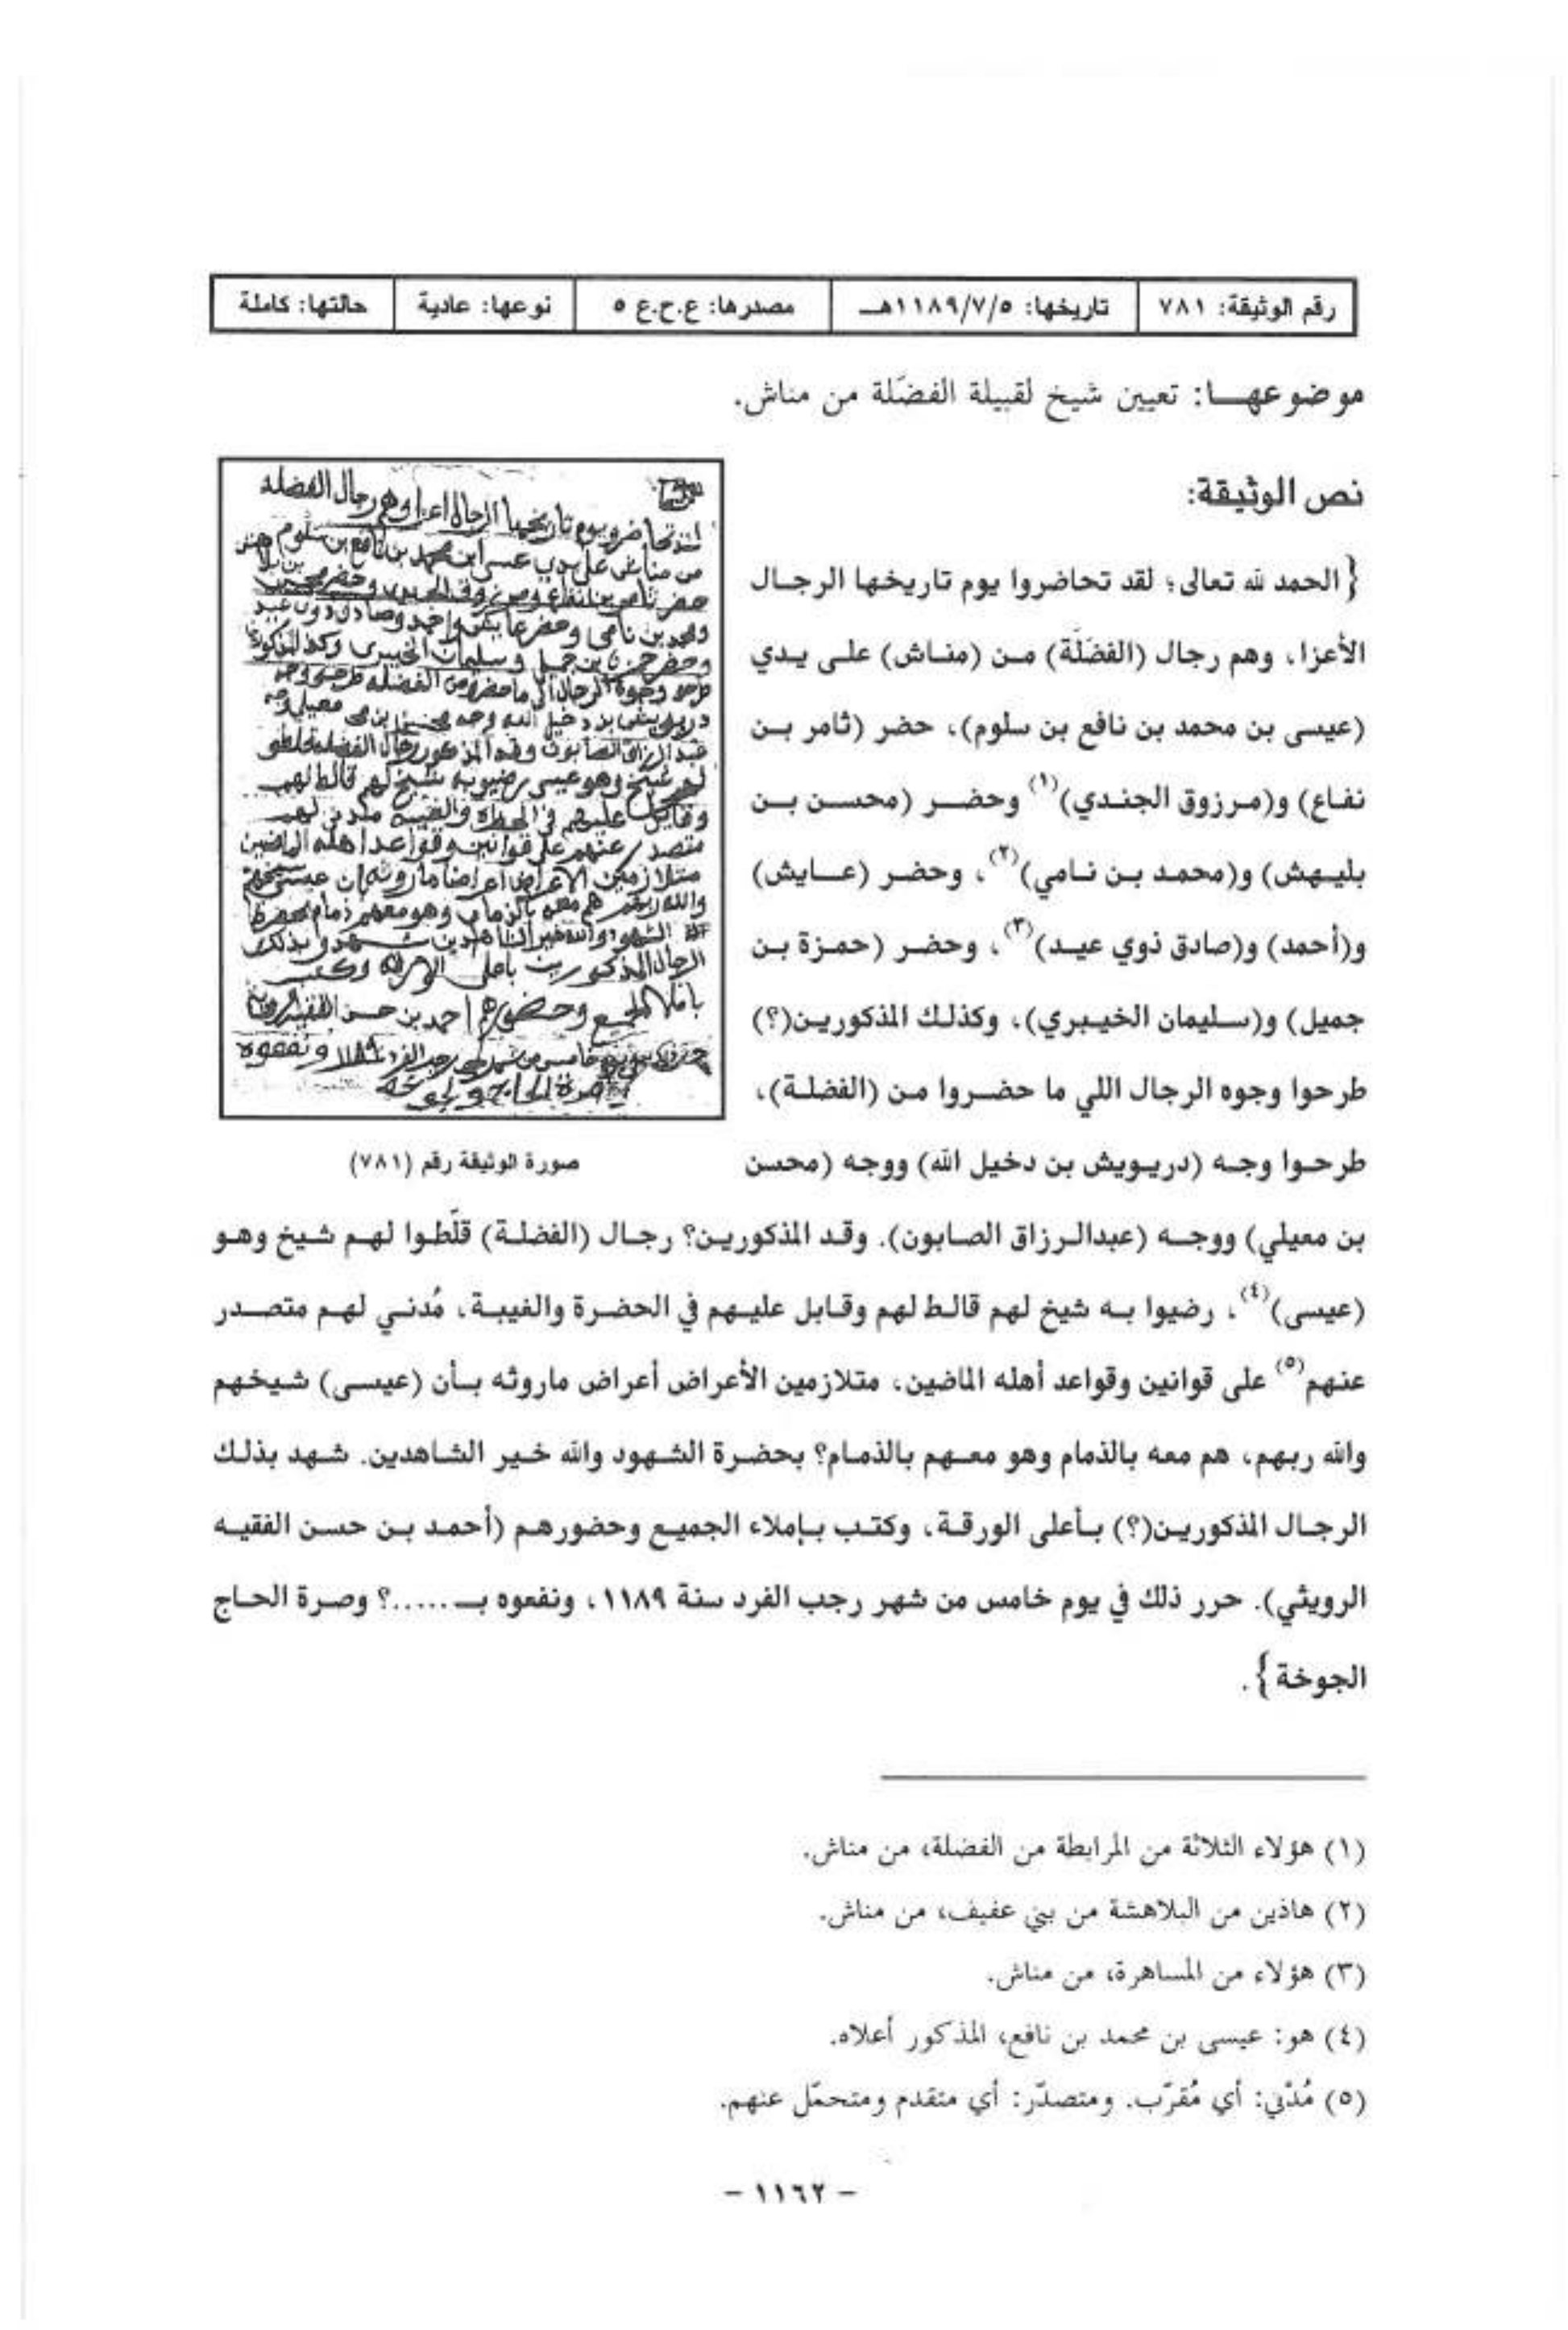 رقم الوثيقة: ٧٨١ | تاريخها: ١١٨٩/٧/٥هـ | مصدرها: ع.ح.ع ٥ | نوعها: عادية | حالتها: كاملة
موضوعهـا: تعيين شيخ لقبيلة الفضَلة من مناش.
نص الوثيقة:
{الحمد لله تعالى؛ لقد تحاضروا يوم تاريخها الرجال
الأعزا، وهم رجال (الفضَلَة) من (مناش) على يدي
(عيسى بن محمد بن نافع بن سلوم)، حضر (ثامر بن
نفاع) و(مرزوق الجندي)(١) وحضر (محسن بن
بليهش) و(محمد بن نامي)(٢)، وحضر (عايش)
و(أحمد) و(صادق ذوي عيد)(٣)، وحضر (حمزة بن
جميل) و(سليمان الخيبري)، وكذلك المذكورين(؟)
طرحوا وجوه الرجال اللي ما حضروا من (الفضلة)،
طرحوا وجه (دريويش بن دخيل الله) ووجه (محسن
صورة الوثيقة رقم (٧٨١)
بن معيلي) ووجه (عبدالرزاق الصابون). وقد المذكورين؟ رجال (الفضلة) قلّطوا لهم شيخ وهو
(عيسى)(٤)، رضيوا به شيخ لهم قالط لهم وقابل عليهم في الحضرة والغيبة، مُدني لهم متصدر
عنهم(٥) على قوانين وقواعد أهله الماضين، متلازمين الأعراض أعراض ماروثه بأن (عيسى) شيخهم
والله ربهم، هم معه بالذمام وهو معهم بالذمام؟ بحضرة الشهود والله خير الشاهدين. شهد بذلك
الرجال المذكورين(؟) بأعلى الورقة، وكتب بإملاء الجميع وحضورهم (أحمد بن حسن الفقيه
الرويثي). حرر ذلك في يوم خامس من شهر رجب الفرد سنة ١١٨٩، ونفعوه بـ .....؟ وصرة الحاج
الجوخة}.
(١) هؤلاء الثلاثة من المرابطة من الفضلة، من مناش.
(٢) هاذين من البلاهشة من بني عفيف، من مناش.
(٣) هؤلاء من المساهرة، من مناش.
(٤) هو: عيسى بن محمد بن نافع، المذكور أعلاه.
(٥) مُدْني: أي مُقرّب. ومتصدّر: أي متقدم ومتحمّل عنهم.
- ١١٦٢ -